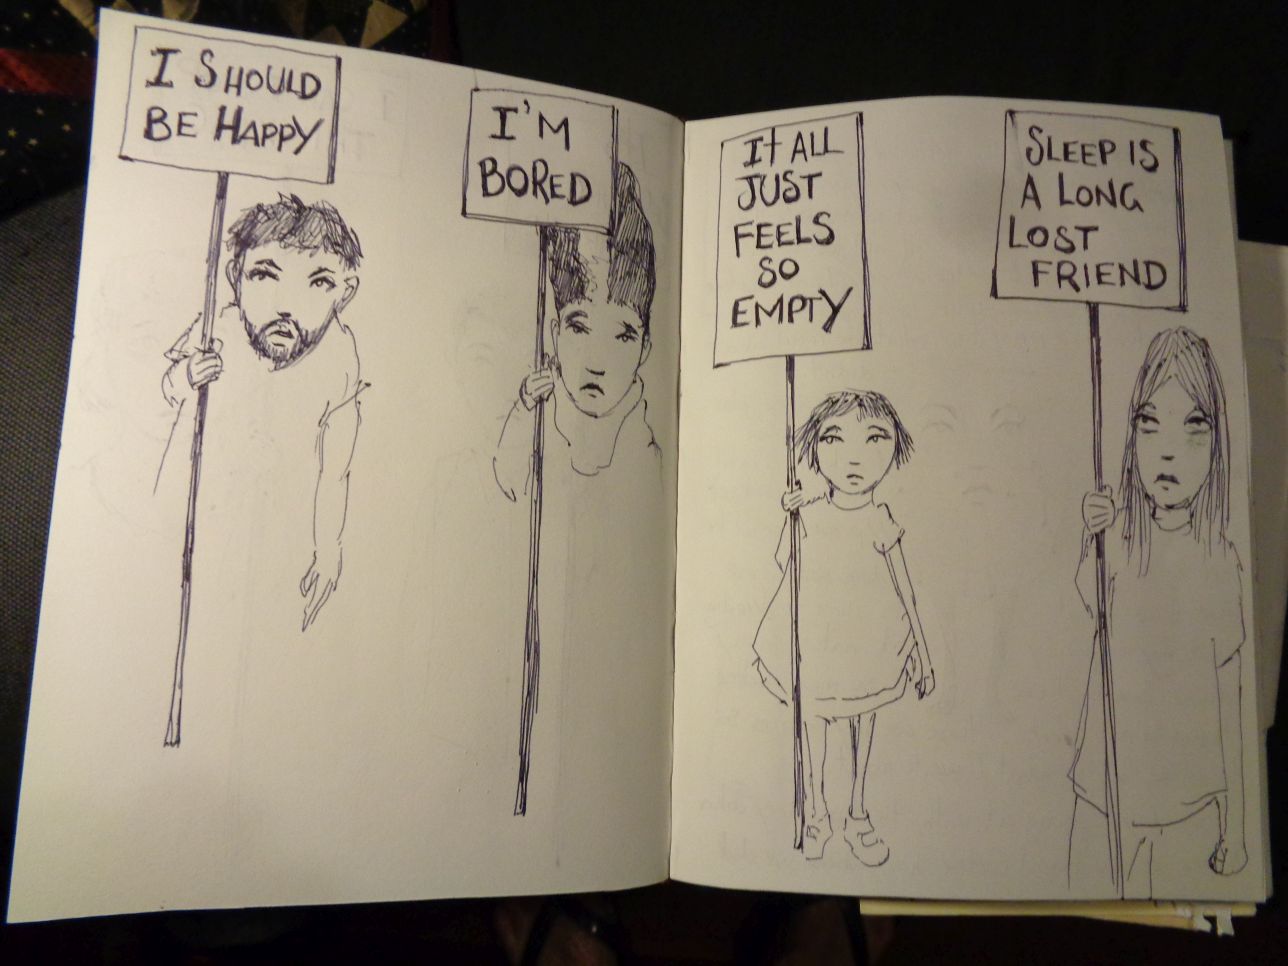 I SHOULD
BE HAPPY
I'M
BORED
It ALL
JUST
FEELS
SO
EMPTY
SLEEP IS
A LONG
LOST
FRIEND